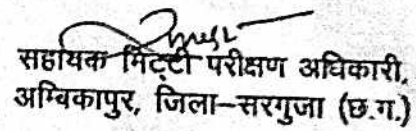 सहायक मिट्टी परीक्षण अधिकारी,
अम्बिकापुर, जिला–सरगुजा (छ.ग.)